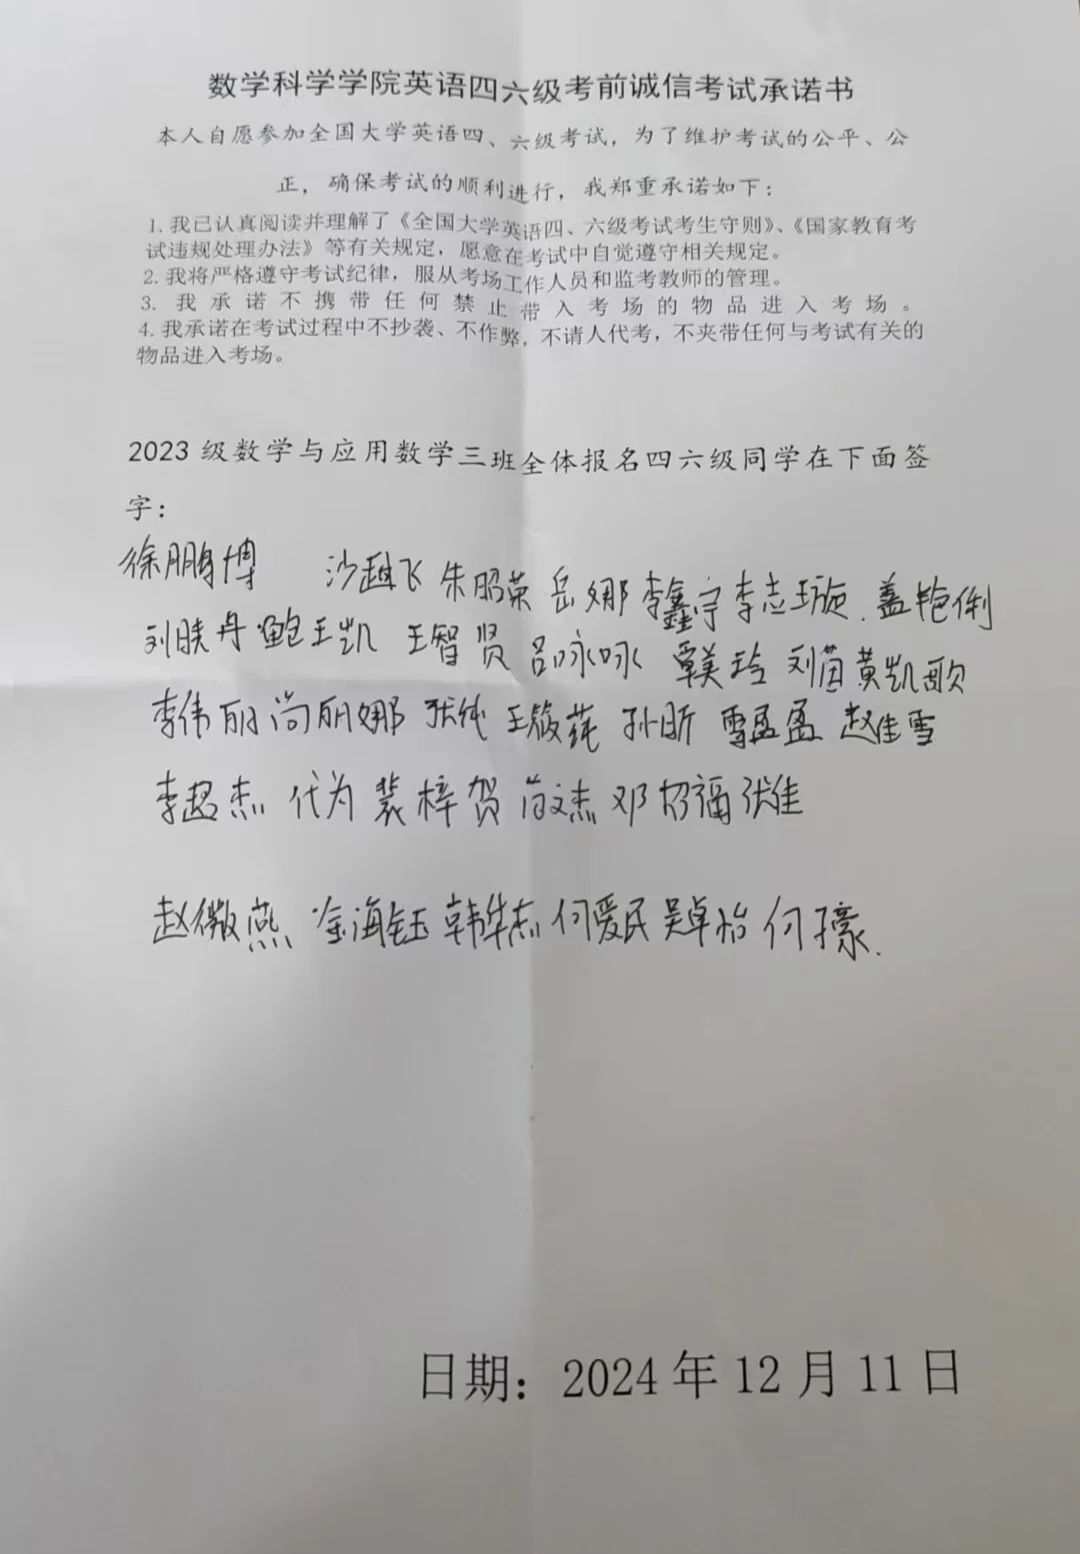 数学科学学院英语四六级考前诚信考试承诺书
本人自愿参加全国大学英语四、六级考试，为了维护考试的公平、公
正，确保考试的顺利进行，我郑重承诺如下：
1. 我已认真阅读并理解了《全国大学英语四、六级考试考生守则》、《国家教育考
试违规处理办法》等有关规定，愿意在考试中自觉遵守相关规定。
2. 我将严格遵守考试纪律，服从考场工作人员和监考教师的管理。
3. 我承诺不携带任何禁止带入考场的物品进入考场。
4. 我承诺在考试过程中不抄袭、不作弊，不请人代考，不夹带任何与考试有关的
物品进入考场。
2023 级数学与应用数学三班全体报名四六级同学在下面签
字：
徐鹏博 沙越飞 朱昭荣 岳娜 李鑫宁 李志璇 盖艳俐
刘晓丹 鲍王凯 王智贤 吕咏咏 覃美玲 刘苗 黄凯歌
李伟丽 尚丽娜 张纯 王筱莼 孙昕 雷孟孟 赵佳雪
李超杰 代为 裴梓贺 苟文杰 邓招福 张佳
赵微燕 金海钰 韩华杰 何爱民 吴卓怡 何子豪
日期：2024 年 12 月 11 日